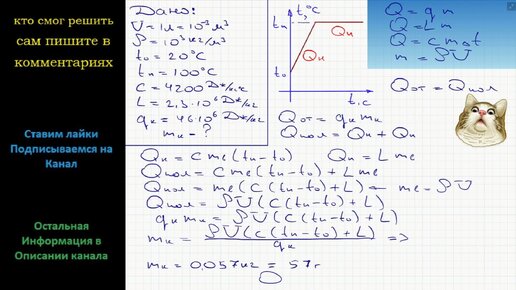 кто смог решить
сам пишите в
комментариях
Ставим лайки
Подписываемся на
Канал
Остальная
Информация в
Описании канала
Дано:
V = 1л = 10⁻³ м³
ρ = 10³ кг/м³
t₀ = 20°C
tп = 100°C
C = 4200 Дж/кг°C
L = 2,3·10⁶ Дж/кг
qк = 46·10⁶ Дж/кг
mк - ?
t,°C
tп
Qп
Qн
t₀
t,c
Q = qm
Q = Lm
Q = cmΔt
m = ρV
Qот = Qпол
Qот = qк mк
Qпол = Qн + Qп
Qн = c mв (tп - t₀) Qп = L mв
Qпол = c mв (tп - t₀) + L mв
Qпол = mв (c (tп - t₀) + L) ← mв = ρV
Qпол = ρV (c (tп - t₀) + L)
qк mк = ρV (c (tп - t₀) + L)
mк = ρV (c (tп - t₀) + L) / qк =>
mк = 0,057кг = 57г